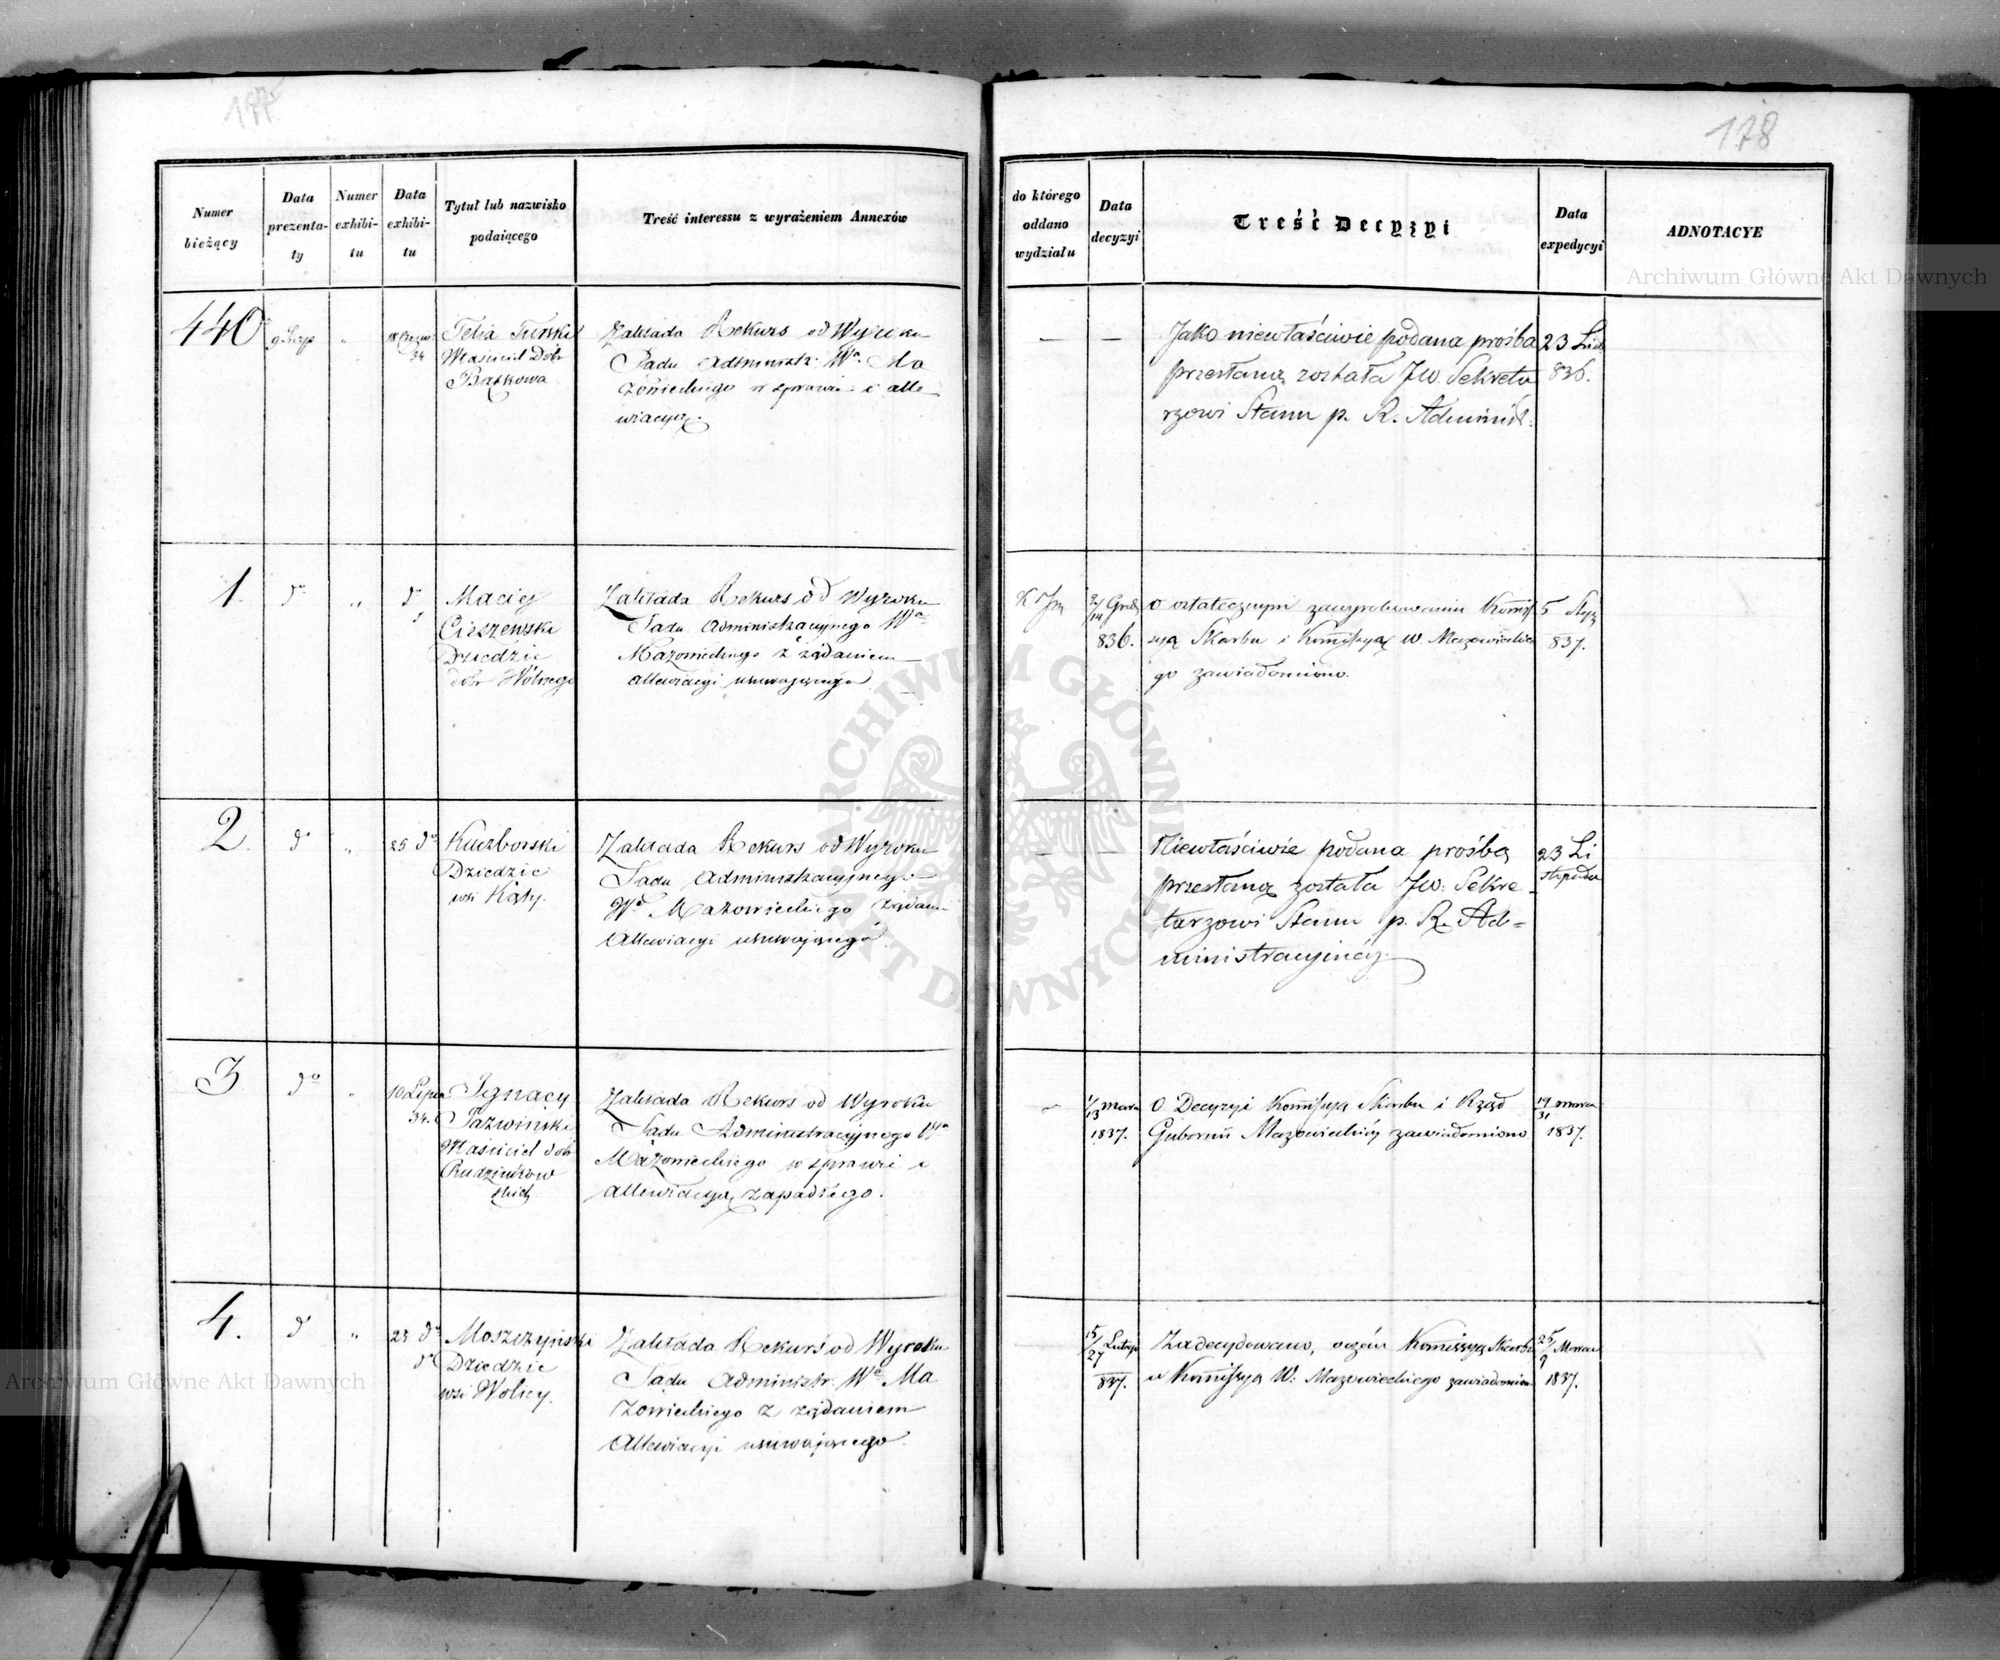 177
178
Numer bieżący
Data prezenta- ty
Numer exhibi- tu
Data exhibi- tu
Tytuł lub nazwisko podaiącego
Treść interessu z wyrażeniem Annexów
do którego oddano wydziału
Data decyzyi
Treść Decyzyi
Data expedycyi
ADNOTACYE
440
Właściciel Dóbr
Zakłada Rekurs od Wyroku
Sądu Administr: Wa Ma
zowieckiego w sprawie o alle
wiacyą.
Jako niewłaściwie podana prośba
przesłaną została JW. Sekreta
rzowi Stanu p. R. Administ:
23 List
836.
1.
do
"
Maciej
Ciszewski
Dziedzic
dóbr
Zakłada Rekurs od Wyroku
Sadu Administracyjnego Wa
Mazowieckiego z żądaniem
allewiacyi usuwającego
2/14 Grud
836.
o ostatecznym zawyrokowaniu Kommis
syą Skarbu i Kommissyą W. Mazowieckie
go zawiadomiono.
5 Sty
837.
2
do
"
25 do
Kuczborski
Dziedzic
wsi Kąty.
Zakłada Rekurs od Wyroku
Sadu Administracyjnego
Wa Mazowieckiego żądani
Allewiacyi usuwającego
Niewłaściwie podana prośba
przesłaną została JW. Sekre-
tarzowi Stanu p. R. Ad=
ministracyjnéj.
23 Li
stopada
3
do
"
10 Lipca
34.
Ignacy
Właściciel dób
Zakłada Rekurs od Wyroku
Sądu Administracyjnego Wa
Mazowieckiego w sprawie o
allewiacyą zapadłego.
1/13 Marca
1837.
O Decyzyi Kommissya Skarbu i Rząd
Gubernii Mazowieckiéj zawiadomiono
19/31 Marca
1837.
4.
do
"
23 do
do
Moszczyński
Dziedzic
wsi Wolicy.
Zakłada Rekurs od Wyroku
Sądu Administr. Wa Ma
zowieckiego z żądaniem
Allewiacyi usuwającego.
15/27 Lutego
837.
Zadecydowano, oczém Kommissyą Skarbu
i Kommissyą W: Mazowieckiego zawiadomiono
25/9 Marca
1837.
Archiwum Główne Akt Dawnych
Archiwum Główne Akt Dawnych
ARCHIWUM GŁÓWNE AKT DAWNYCH